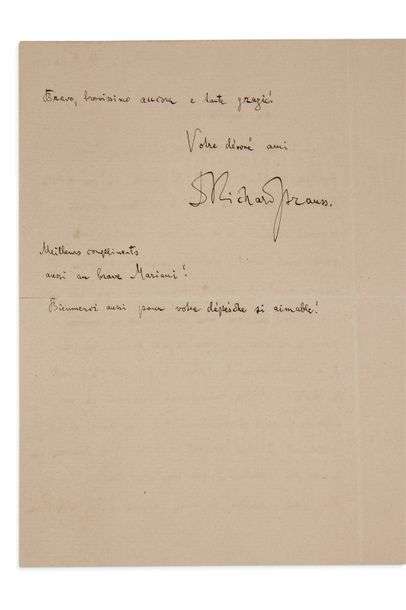 Bravo, bravissimo ancora e tante grazie!
Votre dévoué ami
DRichardStrauss.
Meilleurs compliments
aussi au brave Mariani!
Bienmerci aussi pour votre dépêsche si aimable!